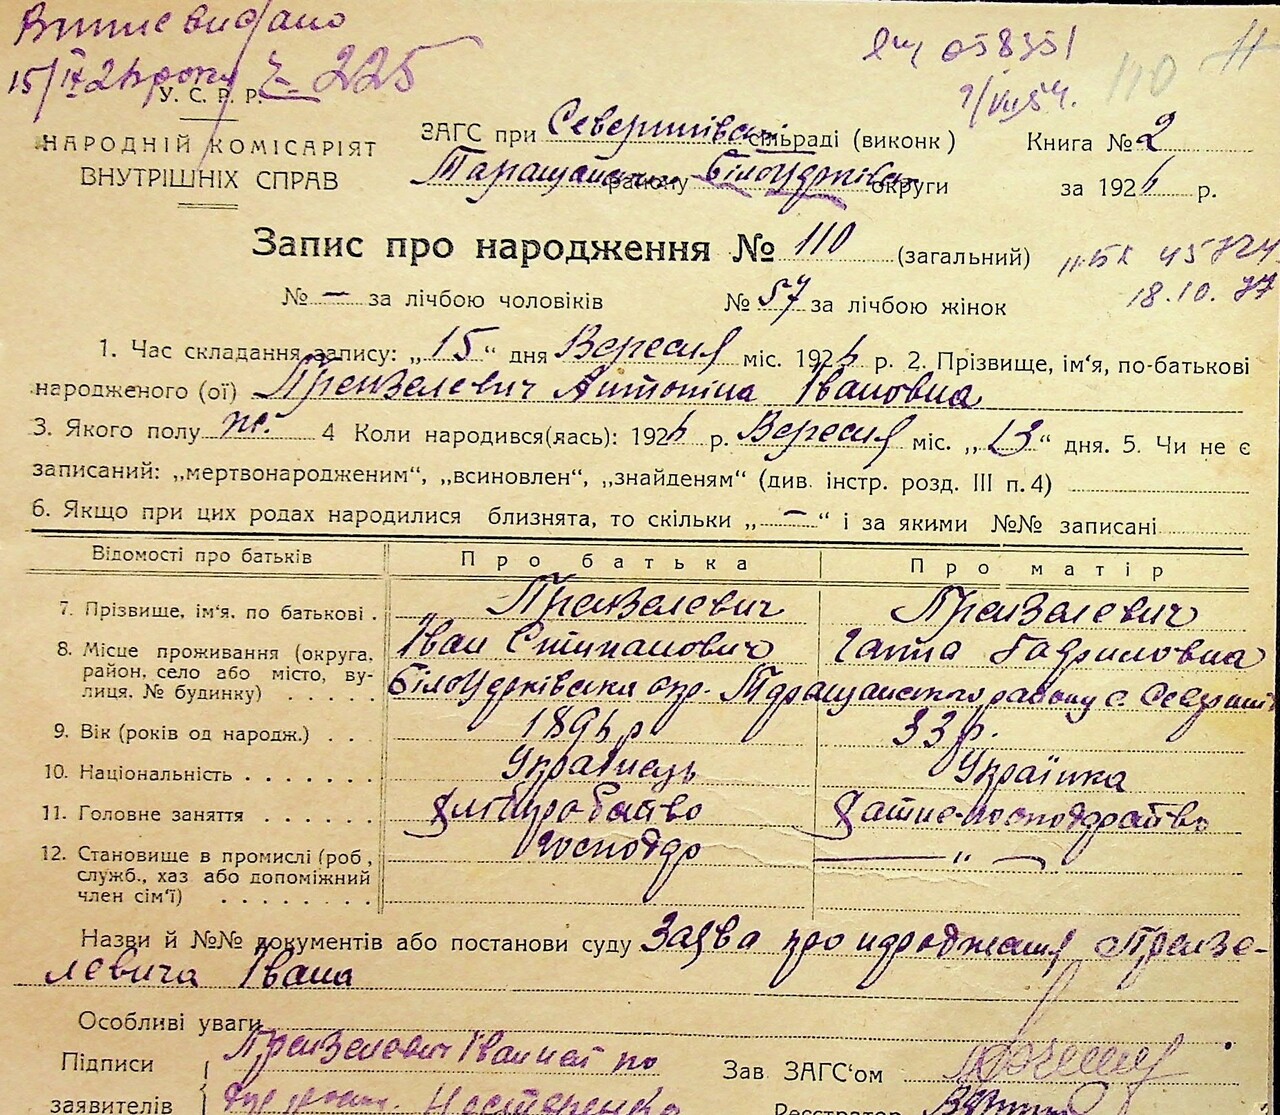 Виписано видано
15/IX 26 року № 225
ЯЩ 058351
9/VII 54.
110
У. С. Р. Р.
НАРОДНІЙ КОМІСАРІЯТ
ВНУТРІШНІХ СПРАВ
ЗАГС при Северинівській сільраді (виконк)
Таращанського району Білоцерківськ округи
Книга № 2
за 1926 р.
Запис про народження № 110 (загальний)
45724
18.10. 77
№ — за лічбою чоловіків № 57 за лічбою жінок
1. Час складання запису: „15“ дня Вересня міс. 1926 р. 2. Прізвище, ім'я, по-батькові
народженого (ої) Прензелевич Антоніна Івановна
3. Якого полу ж. 4 Коли народився(лась): 1926 р. Вересня міс. „13“ дня. 5. Чи не є
записаний: „мертвонародженим“, „всиновлен“, „знайденям“ (див. інстр. розд. III п. 4)
6. Якщо при цих родах народилися близнята, то скільки „—“ і за якими №№ записані
Відомості про батьків Про батька Про матір
7. Прізвище, ім'я, по батькові . Прензелевич Прензелевич
Іван Степанович Ганна Гавриловна
8. Місце проживання (округа,
район, село або місто, ву-
лиця, № будинку) . . . . Білоцерківська окр. Таращанського району с.
9. Вік (років од народж.) . . 1896 р 33 р.
10. Національність . . . . . . . Українець Українка
11. Головне заняття . . . . . . Хліборобство Хатнє-господарство
12. Становище в промислі (роб,
служб., хаз або допоміжний
член сім'ї) . . . . . . . . Господар — „ —
Назви й №№ документів або постанови суду Заява про народження Прензе-
левича Івана
Особливі уваги
Підписи Прензелевич Іван
заявителів Нестеренко
Зав. ЗАГС'ом
Реєстратор